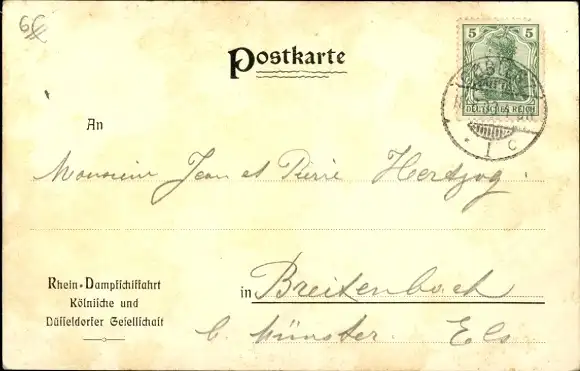 6
Postkarte
5 5
DEUTSCHES REICH
1 c
An
Monsieur Jean et Pierre Hertzog.
Rhein-Dampfschiffahrt
Kölnische und
Düsseldorfer Gesellschaft
in Breitenbach
b. Münster. Els